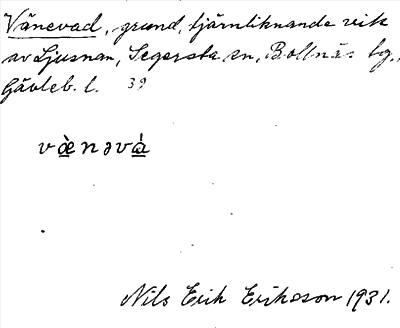 Vänevad, grund, tjärnliknande vik
av Ljusnan, Segersta sn, Bollnäs tg.,
Gävleb. l. 39
væ̀nəvá
Nils Erik Eriksson 1931.